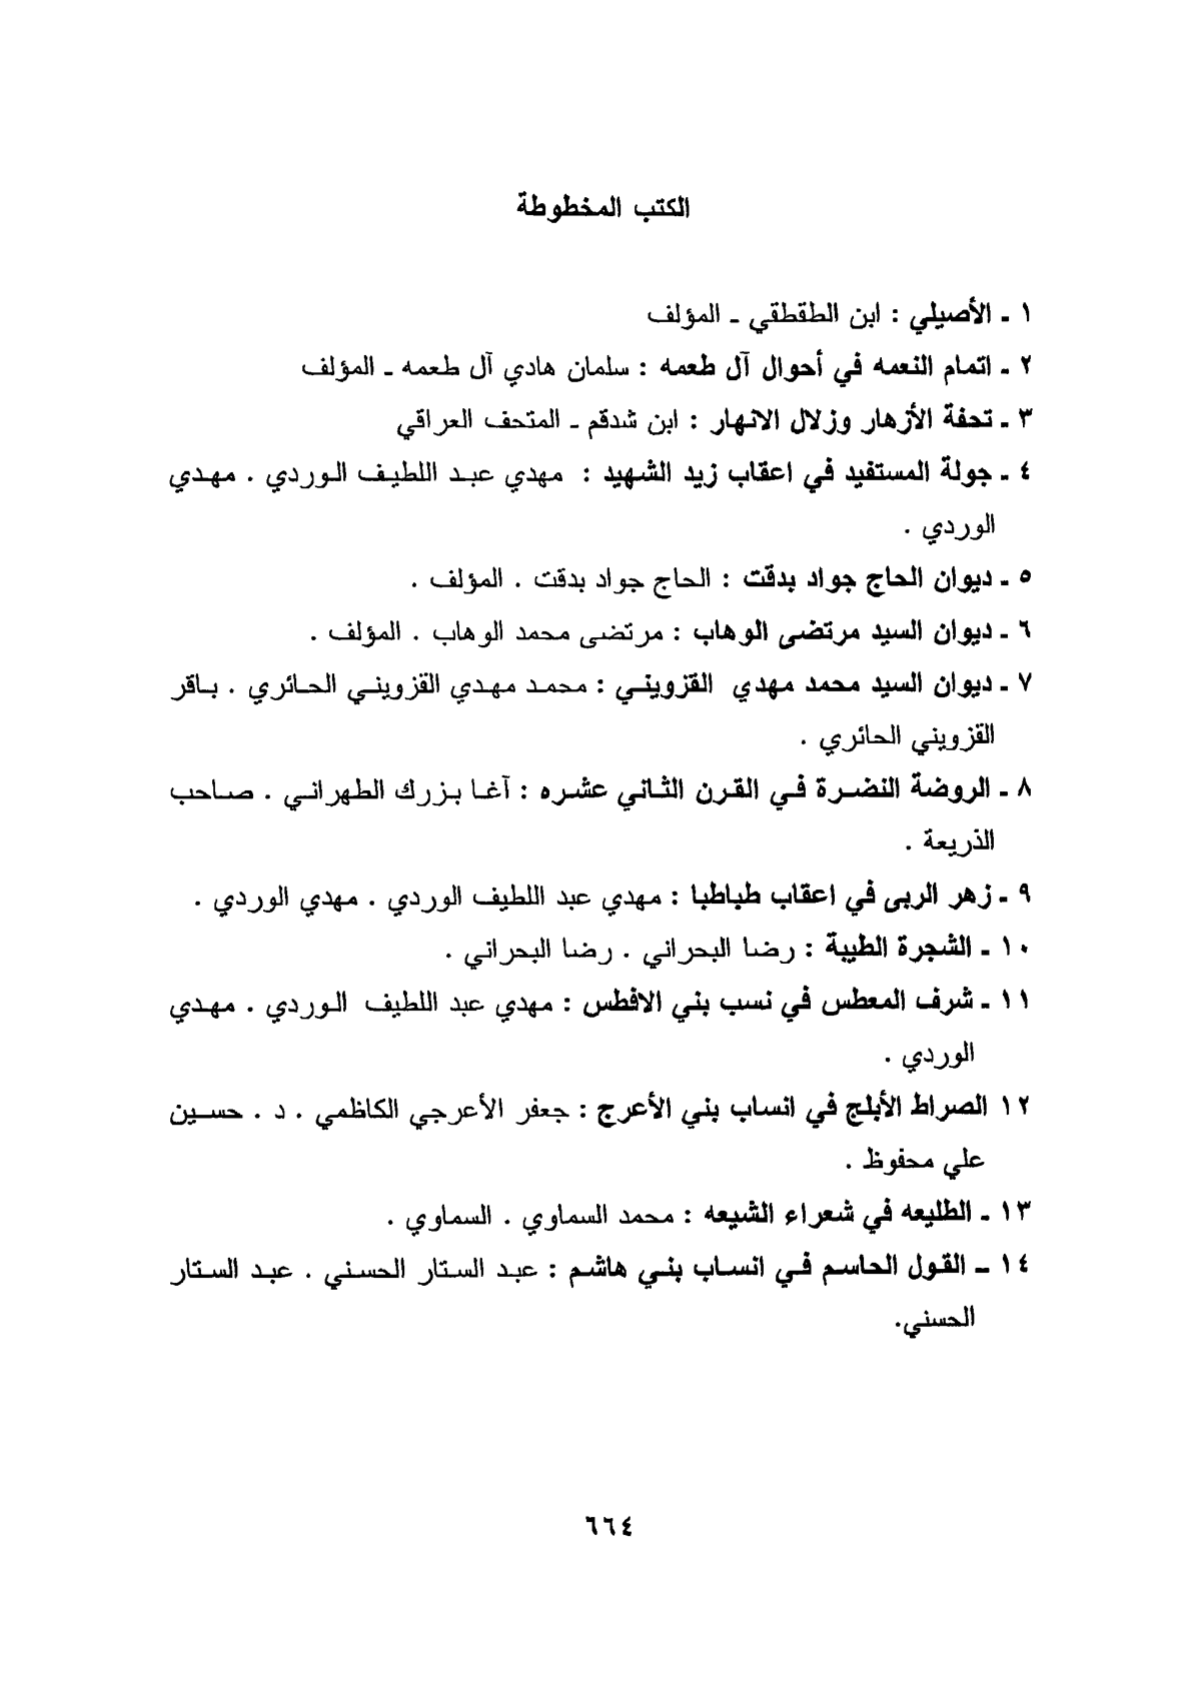 الكتب المخطوطة
١ ـ الأصيلي : ابن الطقطقي ـ المؤلف
٢ ـ اتمام النعمه في أحوال آل طعمه : سلمان هادي آل طعمه ـ المؤلف
٣ ـ تحفة الأزهار وزلال الانهار : ابن شدقم ـ المتحف العراقي
٤ ـ جولة المستفيد في اعقاب زيد الشهيد : مهدي عبد اللطيف الوردي . مهدي
الوردي .
٥ ـ ديوان الحاج جواد بدقت : الحاج جواد بدقت . المؤلف .
٦ ـ ديوان السيد مرتضى الوهاب : مرتضى محمد الوهاب . المؤلف .
٧ ـ ديوان السيد محمد مهدي القزويني : محمد مهدي القزويني الحائري . باقر
القزويني الحائري .
٨ ـ الروضة النضرة في القرن الثاني عشره : آغا بزرك الطهراني . صاحب
الذريعة .
٩ ـ زهر الربى في اعقاب طباطبا : مهدي عبد اللطيف الوردي . مهدي الوردي .
١٠ ـ الشجرة الطيبة : رضا البحراني . رضا البحراني .
١١ ـ شرف المعطس في نسب بني الافطس : مهدي عبد اللطيف الوردي . مهدي
الوردي .
١٢ الصراط الأبلج في انساب بني الأعرج : جعفر الأعرجي الكاظمي . د . حسين
علي محفوظ .
١٣ ـ الطليعه في شعراء الشيعه : محمد السماوي . السماوي .
١٤ ـ القول الحاسم في انساب بني هاشم : عبد الستار الحسني . عبد الستار
الحسني.
٦٦٤